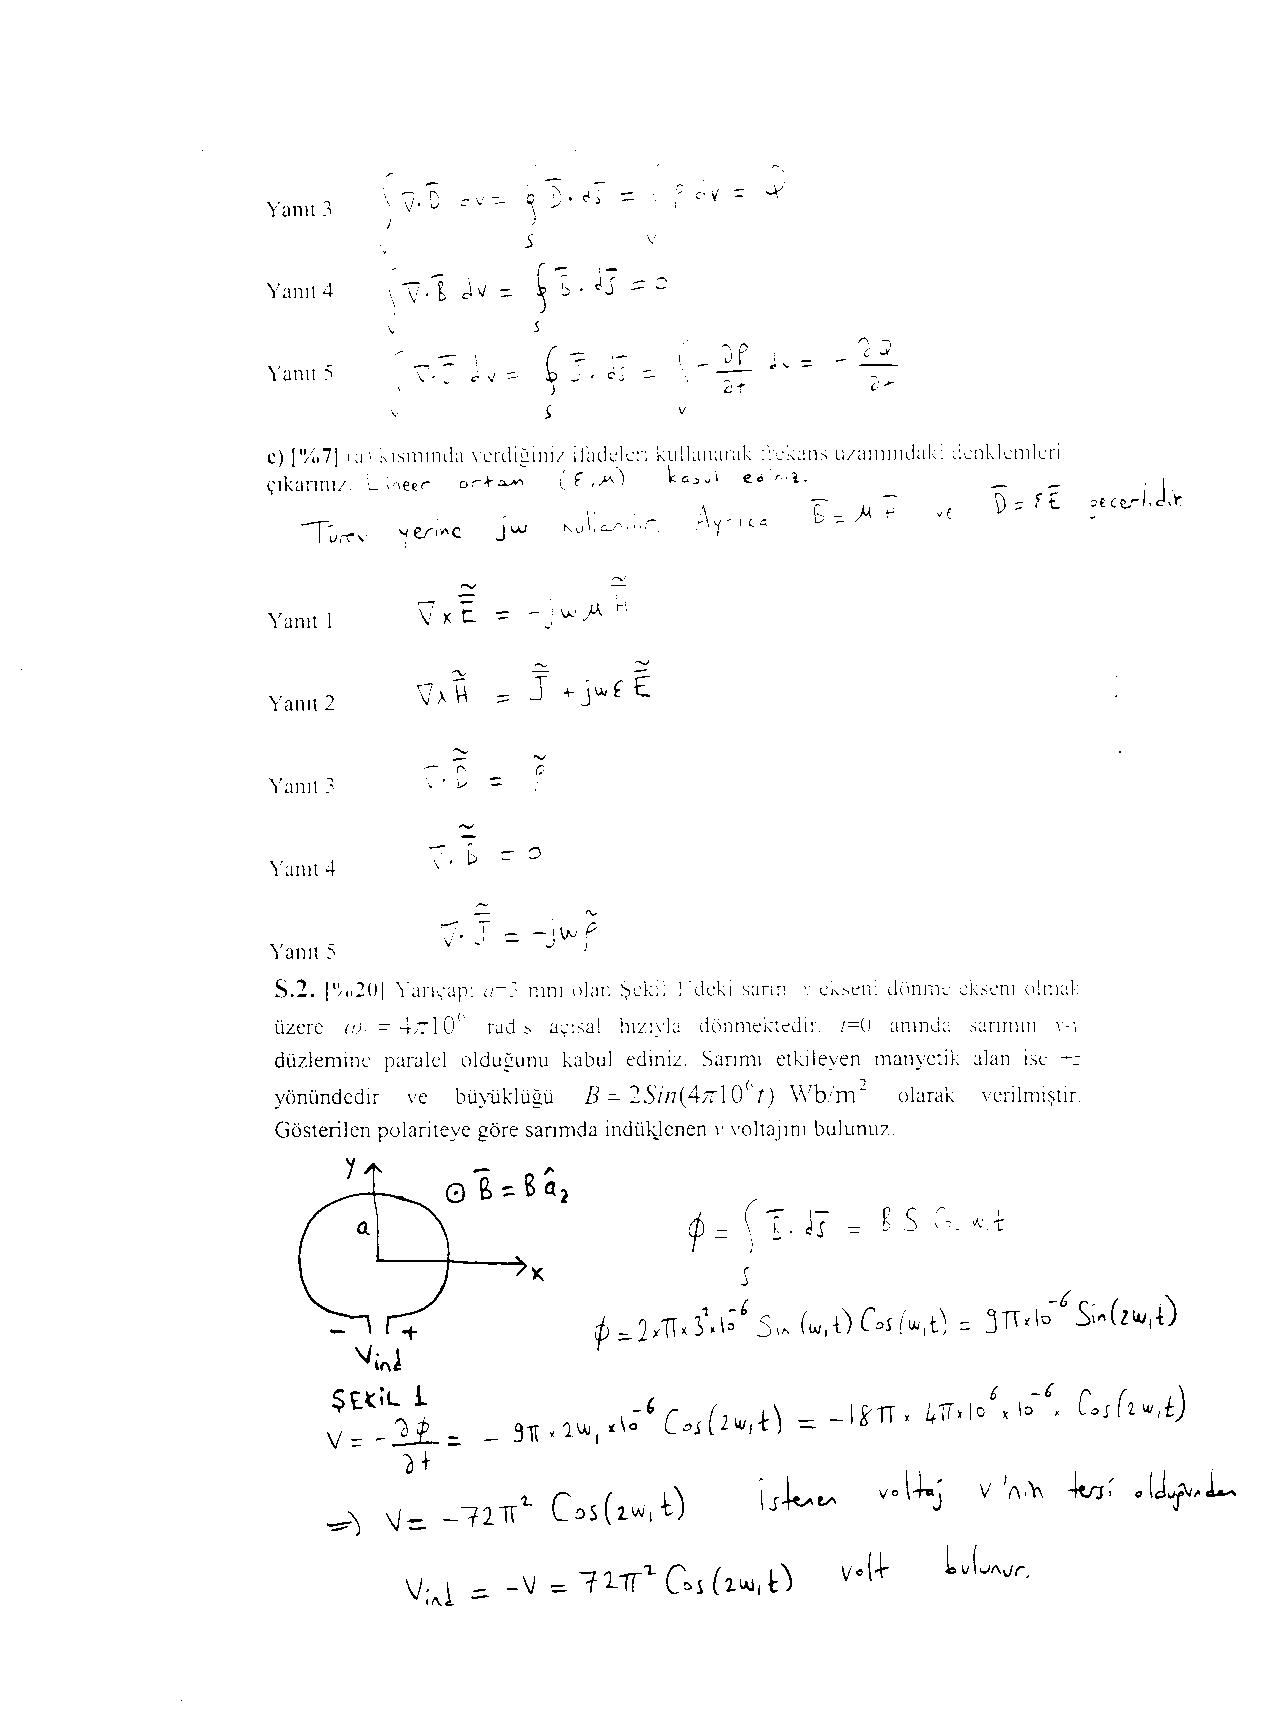 Yanıt 3 ∫ ∇·D̄ dv = ∮ D̄·ds̄ = ∫ ρ dv = Q
S v
Yanıt 4 ∫ ∇·B̄ dv = ∮ B̄·ds̄ = 0
v S
Yanıt 5 ∫ ∇·J̄ dv = ∮ J̄·ds̄ = ∫ -∂ρ/∂t dv = -∂Q/∂t
v S v
c) [%7] kısmında verdiğiniz ifadeleri kullanarak frekans uzamındaki denklemleri
çıkarınız. Lineer ortam (ε,μ) kabul ediniz.
Türev yerine jw kullanılır. Ayrıca B̄ = μH̄ ve D̄ = εĒ geçerlidir
Yanıt 1 ∇×Ẽ = -jwμH̃
Yanıt 2 ∇×H̃ = J̃ + jwεẼ
Yanıt 3 ∇·D̃ = ρ̃
Yanıt 4 ∇·B̃ = 0
Yanıt 5 ∇·J̃ = -jwρ̃
S.2. [%20] Yarıçapı a=3 mm olan Şekil 1'deki sarım y ekseni dönme ekseni olmak
üzere ω₁ = 4π10⁶ rad/s açısal hızıyla dönmektedir. t=0 anında sarımın x-y
düzlemine paralel olduğunu kabul ediniz. Sarımı etkileyen manyetik alan ise +z
yönündedir ve büyüklüğü B = 2Sin(4π10⁶t) Wb/m² olarak verilmiştir.
Gösterilen polariteye göre sarımda indüklenen v voltajını bulunuz.
y
⊙ B̄ = B âz
a
x
ϕ = ∫ B̄·ds̄ = B S Cos w₁t
S
- +
Vind
ϕ = 2×π×3²×10⁻⁶ Sin(w₁t) Cos(w₁t) = 9π×10⁻⁶ Sin(2w₁t)
ŞEKİL 1
V = -∂ϕ/∂t = - 9π × 2w₁ ×10⁻⁶ Cos(2w₁t) = -18π × 4π×10⁶ × 10⁻⁶ × Cos(2w₁t)
⇒ V = -72π² Cos(2w₁t) istenen voltaj V'nin tersi olduğundan
Vind = -V = 72π² Cos(2w₁t) volt bulunur.